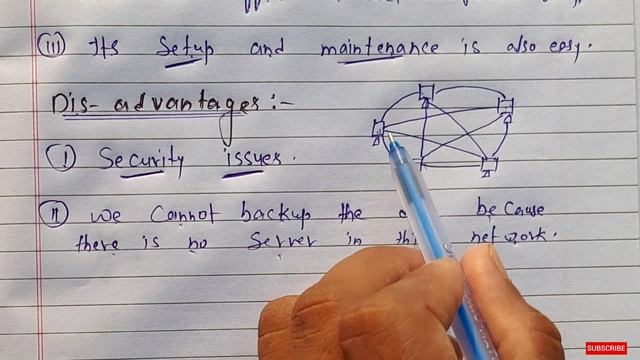 (iii) Its Setup and maintenance is also easy.
Dis-advantages:-
(i) Security issues.
(ii) we cannot backup the because
there is no Server in this network.
SUBSCRIBE